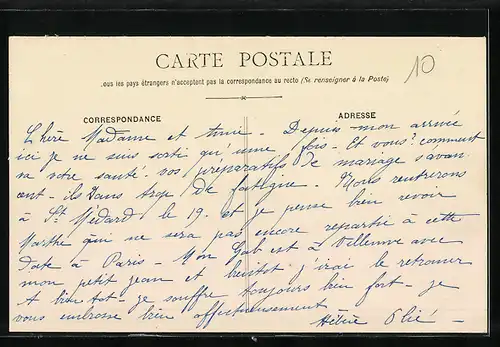 CARTE POSTALE
10
ous les pays étrangers n'acceptent pas la correspondance au recto (Se renseigner à la Poste)
CORRESPONDANCE
ADRESSE
Chère Madame et amie - Depuis mon arrivée
ici je ne suis sorti qu'une fois - Et vous? comment
va votre santé. vos préparatifs de mariage s'avan
cent - ils Sans trop de fatigue. Nous rentrerons
à St Médard le 19. et je pense bien revoir
Marthe qui ne sera pas encore repartie à cette
Date à Paris - Mon Gab est à Villeneuve avec
mon petit Jean et bientôt j'irai le retrouver
A bientôt - je souffre toujours bien fort - je
vous embrasse bien affectueusement